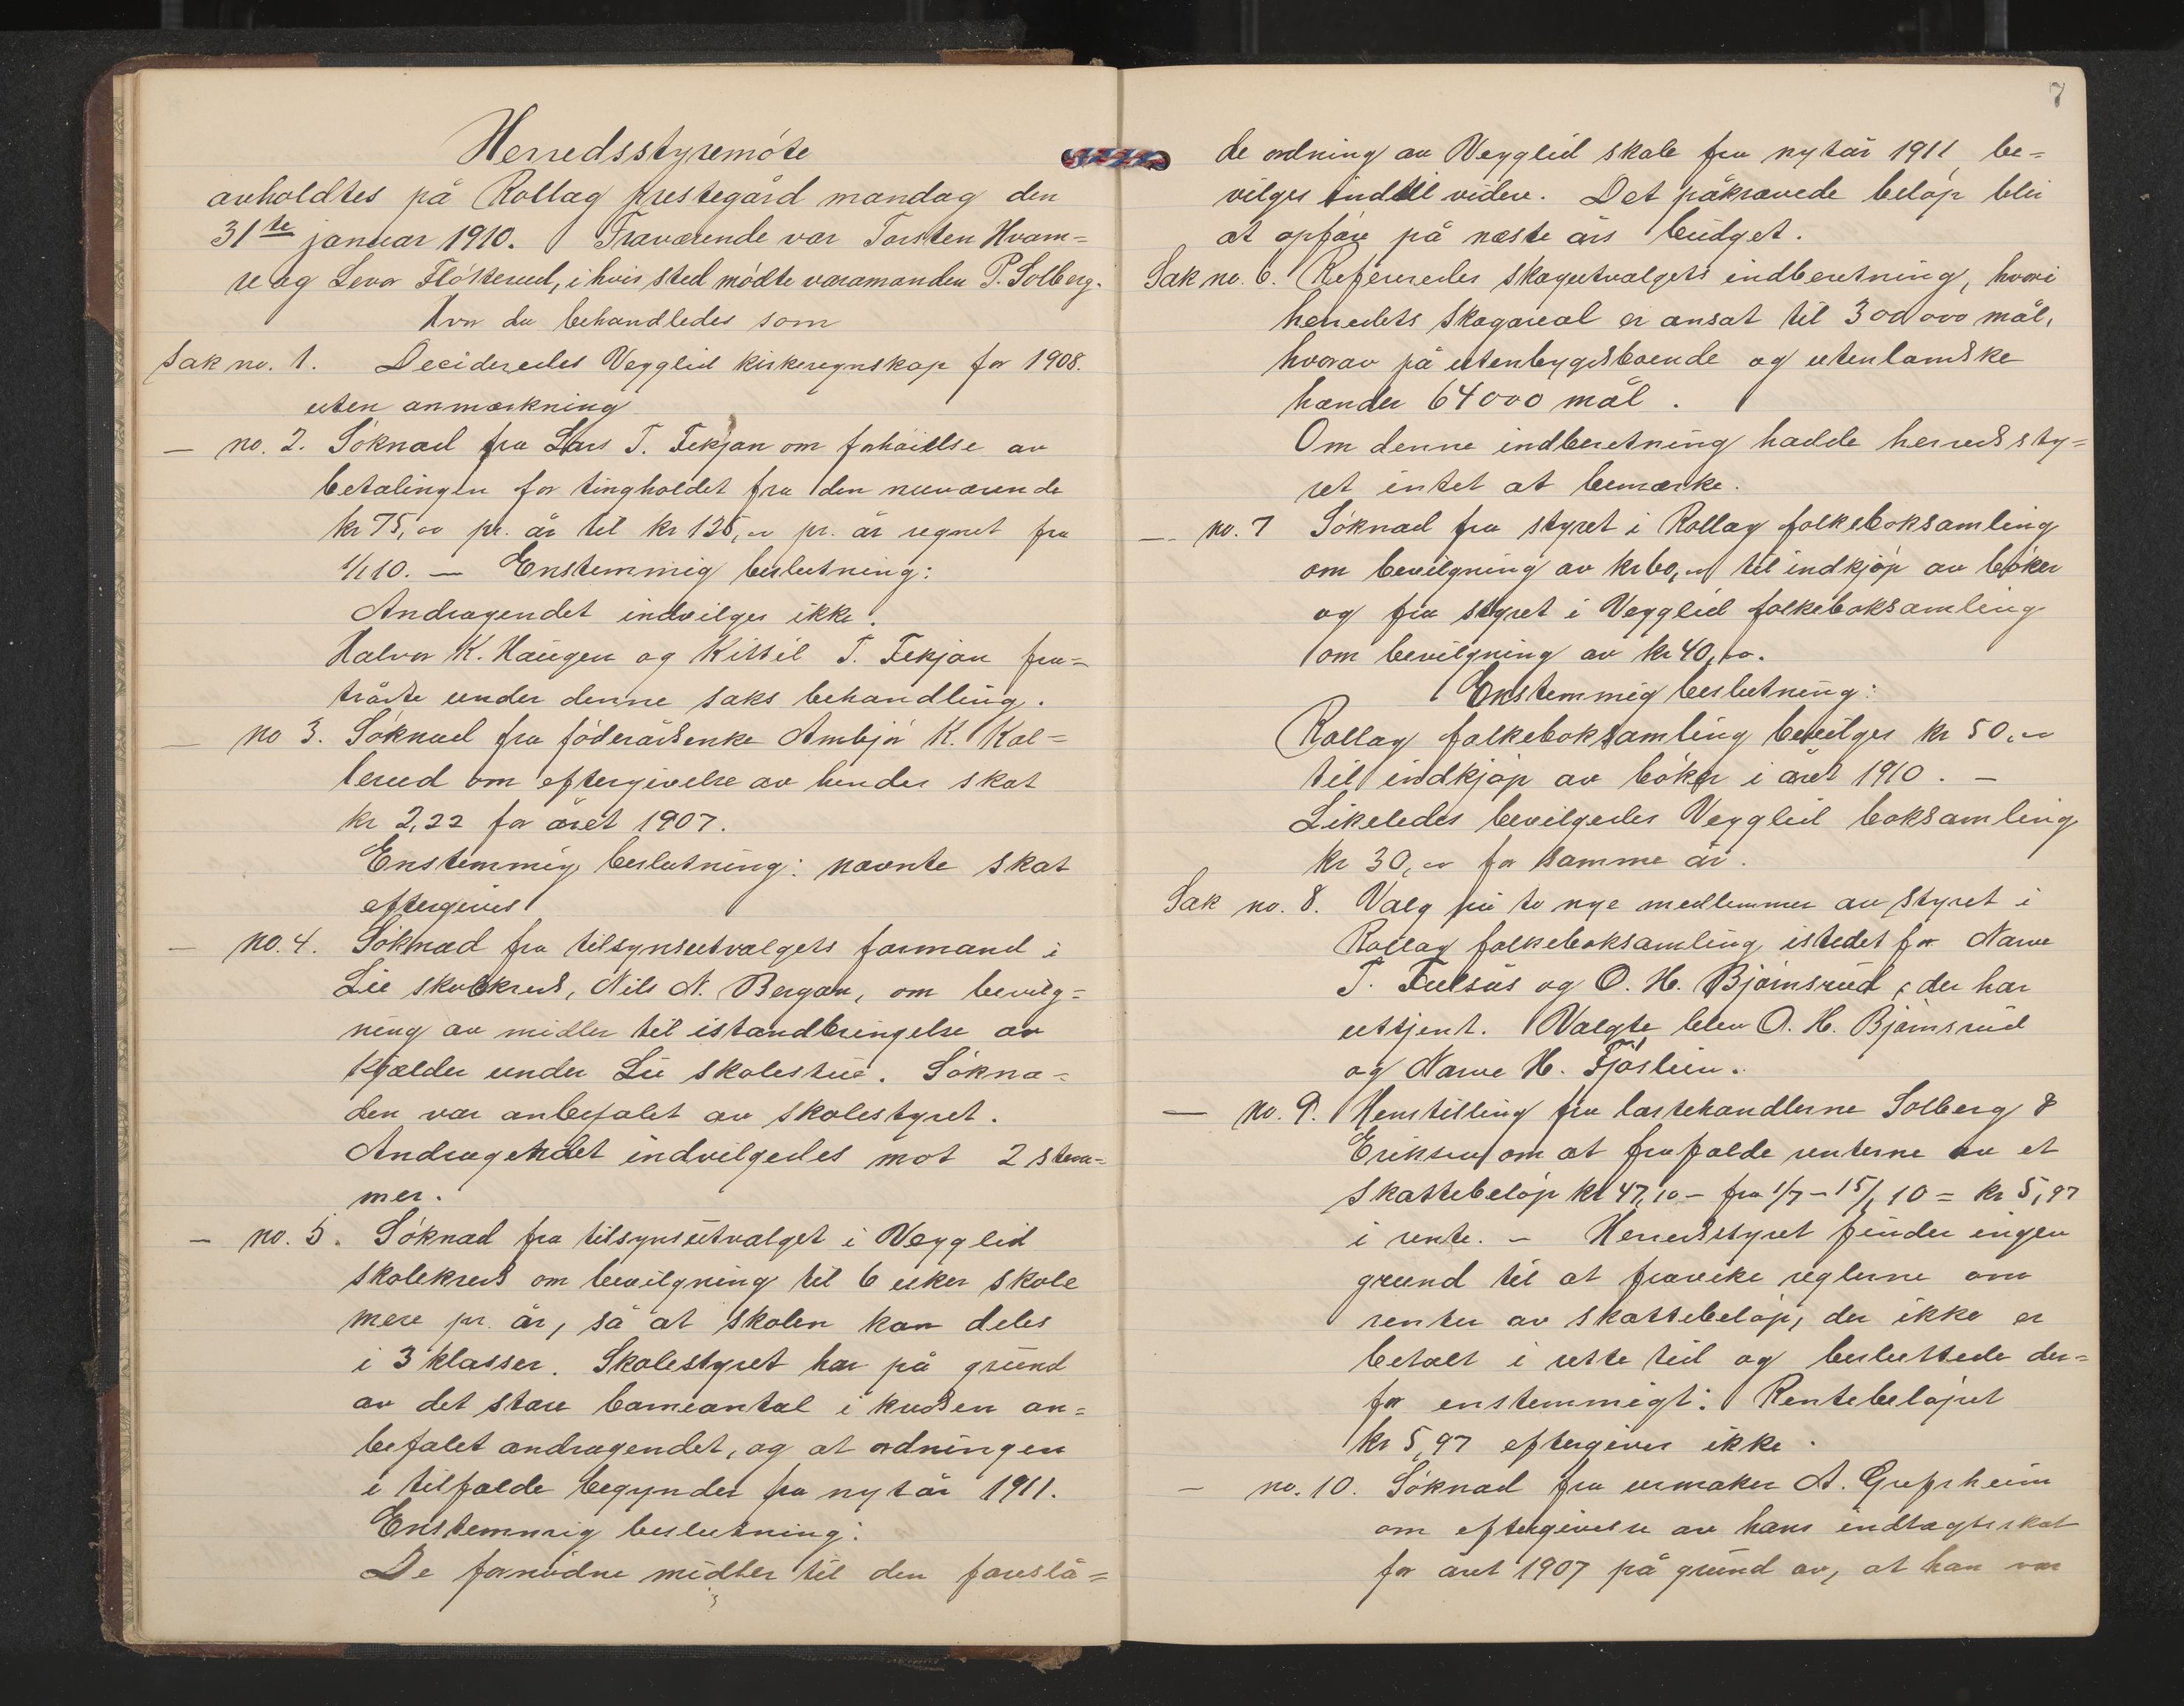 Herredsstyremöte
avholdtes på Rollag prestegård mandag den
31te januar 1910. Fraværende var Torsten Hvam-
re og Levor Flötterud, i hvis sted mödte varamanden P. Solberg.
Hvor da behandledes som
Sak no. 1. Decideredes Vegglid kirkeregnskap for 1908.
uten anmærkning
— no. 2. Söknad fra Lars T. Tekjan om forhöielse av
betalingen for tingholdet fra den nuværende
kr 75,00 pr. år til kr 125,00 pr. år regnet fra
1/1 10. — Enstemmig beslutning:
Andragendet indvilges ikke.
Halvor K. Haugen og Kittil T. Tekjan fra-
trådte under denne saks behandling.
— no 3. Söknad fra föderådsenke Ambjör K. Kol-
berud om eftergivelse av hendes skat
kr 2,22 for året 1907.
Enstemmig beslutning: nævnte skat
eftergives
— no. 4. Söknad fra tilsynsutvalgets formand i
Lie skolekreds, Nils N. Bergan, om bevilg-
ning av midler til istandbringelse av
kjælder under Lie skolestue. Sökna-
den var anbefalet av skolestyret.
Andragendet indvilgedes mot 2 stem-
mer.
— no. 5. Söknad fra tilsynsutvalget i Vegglid
skolekreds om bevilgning til 6 uker skole
mere pr. år, så at skolen kan deles
i 3 klasser. Skolestyret har på grund
av det store barneantal i kredsen an-
befalet andragendet, og at ordningen
i tilfælde begynder fra nytår 1911.
Enstemmig beslutning:
De fornödne midler til den foreslå-
7
de ordning av Vegglid skole fra nytår 1911 be-
vilges indtil videre. Det påkrævede belöp blir
at opföre på næste års budget.
Sak no. 6. Refereredes skogutvalgets indberetning, hvori
herredets skogareal er ansat til 300000 mål,
hvorav på utenbygdsboende og utenlandske
hænder 64000 mål.
Om denne indberetning hadde herredssty-
ret intet at bemærke.
— no. 7 Söknad fra styret i Rollag folkeboksamling
om bevilgning av kr 60,00 til indkjöp av böker
og fra styret i Vegglid folkeboksamling
om bevilgning av kr 40,00.
Enstemmig beslutning:
Rollag folkeboksamling bevilges kr 50,00
til indkjöp av böker i året 1910. —
Likeledes bevilgedes Vegglid boksamling
kr 30,00 for samme år.
Sak no. 8. Valg på to nye medlemmer av styret i
Rollag folkeboksamling istedet for Narve
T. Fulsås og O. H. Björnsrud, der har
uttjent. Valgte blev O. H. Björnsrud
og Narve H. Fjöslien.
— no. 9. Henstilling fra lastehandlerne Solberg &
Eriksen om at frafalde renterne av et
skattebelöp kr 47,10 — fra 1/7 — 15/1 10 = kr 5,97
i rente. — Herredsstyret finder ingen
grund til at fravike reglerne om
renter av skattebelöp, der ikke er
betalt i rette tid og besluttede der-
for enstemmigt: Rentebelöpet
kr 5,97 eftergives ikke.
— no. 10. Söknad fra urmaker A. Grefsheim
om eftergivelse av hans indtægtsskat
for året 1907 på grund av, at han var